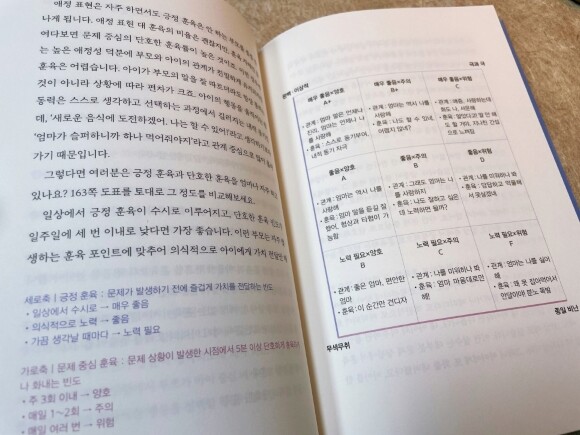 애정 표현은 자주 하면서도 긍정 훈육은 안 하는
나게 됩니다. 애정 표현 대 훈육의 비율은 괜찮지만, 훈육
여다보면 문제 중심의 단호한 훈육률이 높은 것이죠. 이런
는 높은 애정성 덕분에 부모와 아이의 관계가 친밀하게
훈육은 어렵습니다. 아이가 부모의 말을 잘 따르더라도
것이 아니라 상황에 따라 편차가 크죠. 아이의 행동을
동력은 스스로 생각하고 선택하는 과정에서 길러지는
데, '새로운 음식에 도전하겠어. 나는 할 수 있어!'라고 생각하기
'엄마가 슬퍼하니까 하나 먹어줘야지'라고 관계 중심으로
가기 때문입니다.
그렇다면 여러분은 긍정 훈육과 단호한 훈육을 얼마나 자주 하고
있나요? 163쪽 도표를 토대로 그 정도를 비교해보세요.
일상에서 긍정 훈육이 수시로 이루어지고, 단호한 훈육
일주일에 세 번 이내로 낮다면 가장 좋습니다. 이런 부모는 자주
생하는 훈육 포인트에 맞추어 의식적으로 아이에게 가치
세로축 | 긍정 훈육 : 문제가 발생하기 전에 즐겁게 가치를 전달하는 빈도
• 일상에서 수시로 → 매우 좋음
• 의식적으로 노력 → 좋음
• 가끔 생각날 때마다 → 노력 필요
가로축 | 문제 중심 훈육 : 문제 상황이 발생한 시점에서 5분 이상 단호하게
나 화내는 빈도
• 주 3회 이내 → 양호
• 매일 1~2회 → 주의
• 매일 여러 번 → 위험
매우 좋음×양호
A+
• 관계 : 엄마 말은 언제나
진리, 엄마는 언제나 나
를 사랑해
• 훈육 : 스스로 동기부여,
내적 동기 최극
매우 좋음×주의
B+
• 관계 : 엄마는 역시 나를
사랑해
• 훈육 : 나도 할 수 있네,
어렵지 않네?
매우 좋음×위험
C
• 관계 : 애증, 사랑하는데
좋음×양호
A
• 관계 : 엄마는 역시 나를
사랑해
• 훈육 : 엄마 말을 듣길 잘
했어, 협상과 타협이 가
능함
좋음×주의
B
• 관계 : 그래도 엄마는 나
를 사랑해
• 훈육 : 나도 잘하고 싶은
데 노력하면 될까?
좋음×위험
D
• 관계 : 나를 미워하나 봐
노력 필요×양호
B
• 관계 : 좋은 엄마, 편안한
엄마
• 훈육 : 이 순간만 견디자
노력 필요×주의
C
• 관계 : 나를 미워하나 봐
• 훈육 : 엄마 마음대로만
해!
노력 필요×위험
F
• 관계 : 엄마는 나를 싫어
해
무색무취
종일 비난